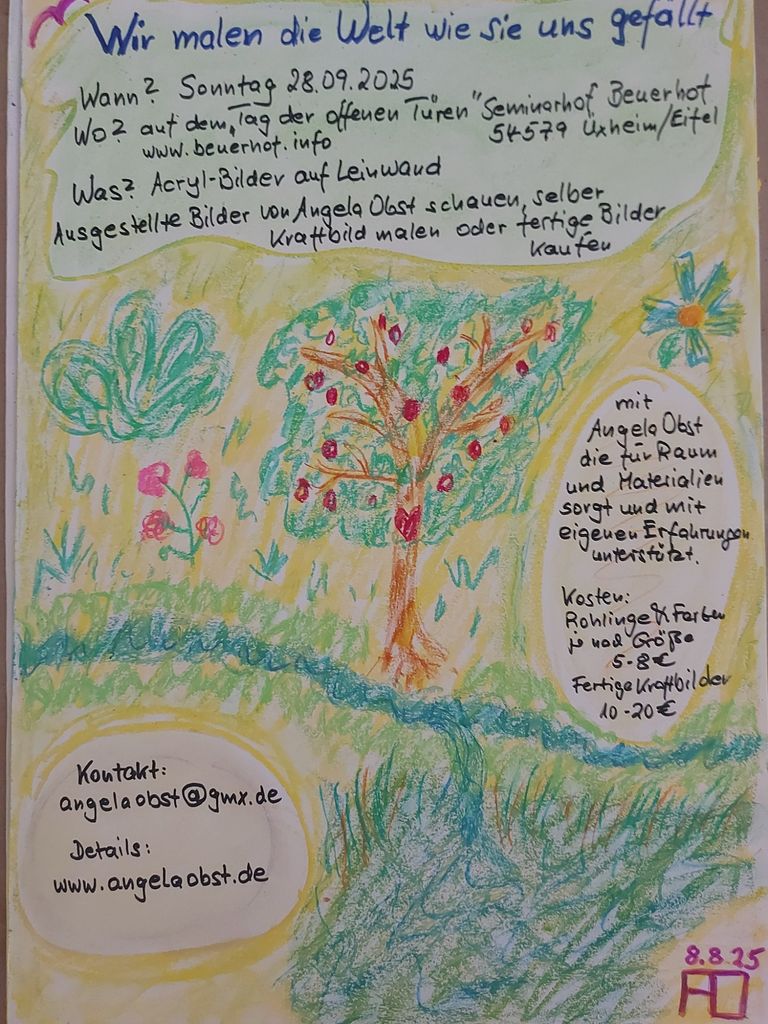 Wir malen die Welt wie sie uns gefällt
Wann? Sonntag 28.09.2025
Wo? auf dem „Tag der offenen Türen" Seminarhof Beuerhof
www.beuerhof.info 54579 Üxheim/Eifel
Was? Acryl-Bilder auf Leinwand
Ausgestellte Bilder von Angela Obst schauen, selber
Kraftbild malen oder fertige Bilder
kaufen
mit
Angela Obst
die für Raum
und Materialien
sorgt und mit
eigenen Erfahrungen
unterstützt.
Kosten:
Rohlinge & Farben
je nach Größe
5-8€
Fertige Kraftbilder
10-20€
Kontakt:
angelaobst@gmx.de
Details:
www.angelaobst.de
8.8.25
AO